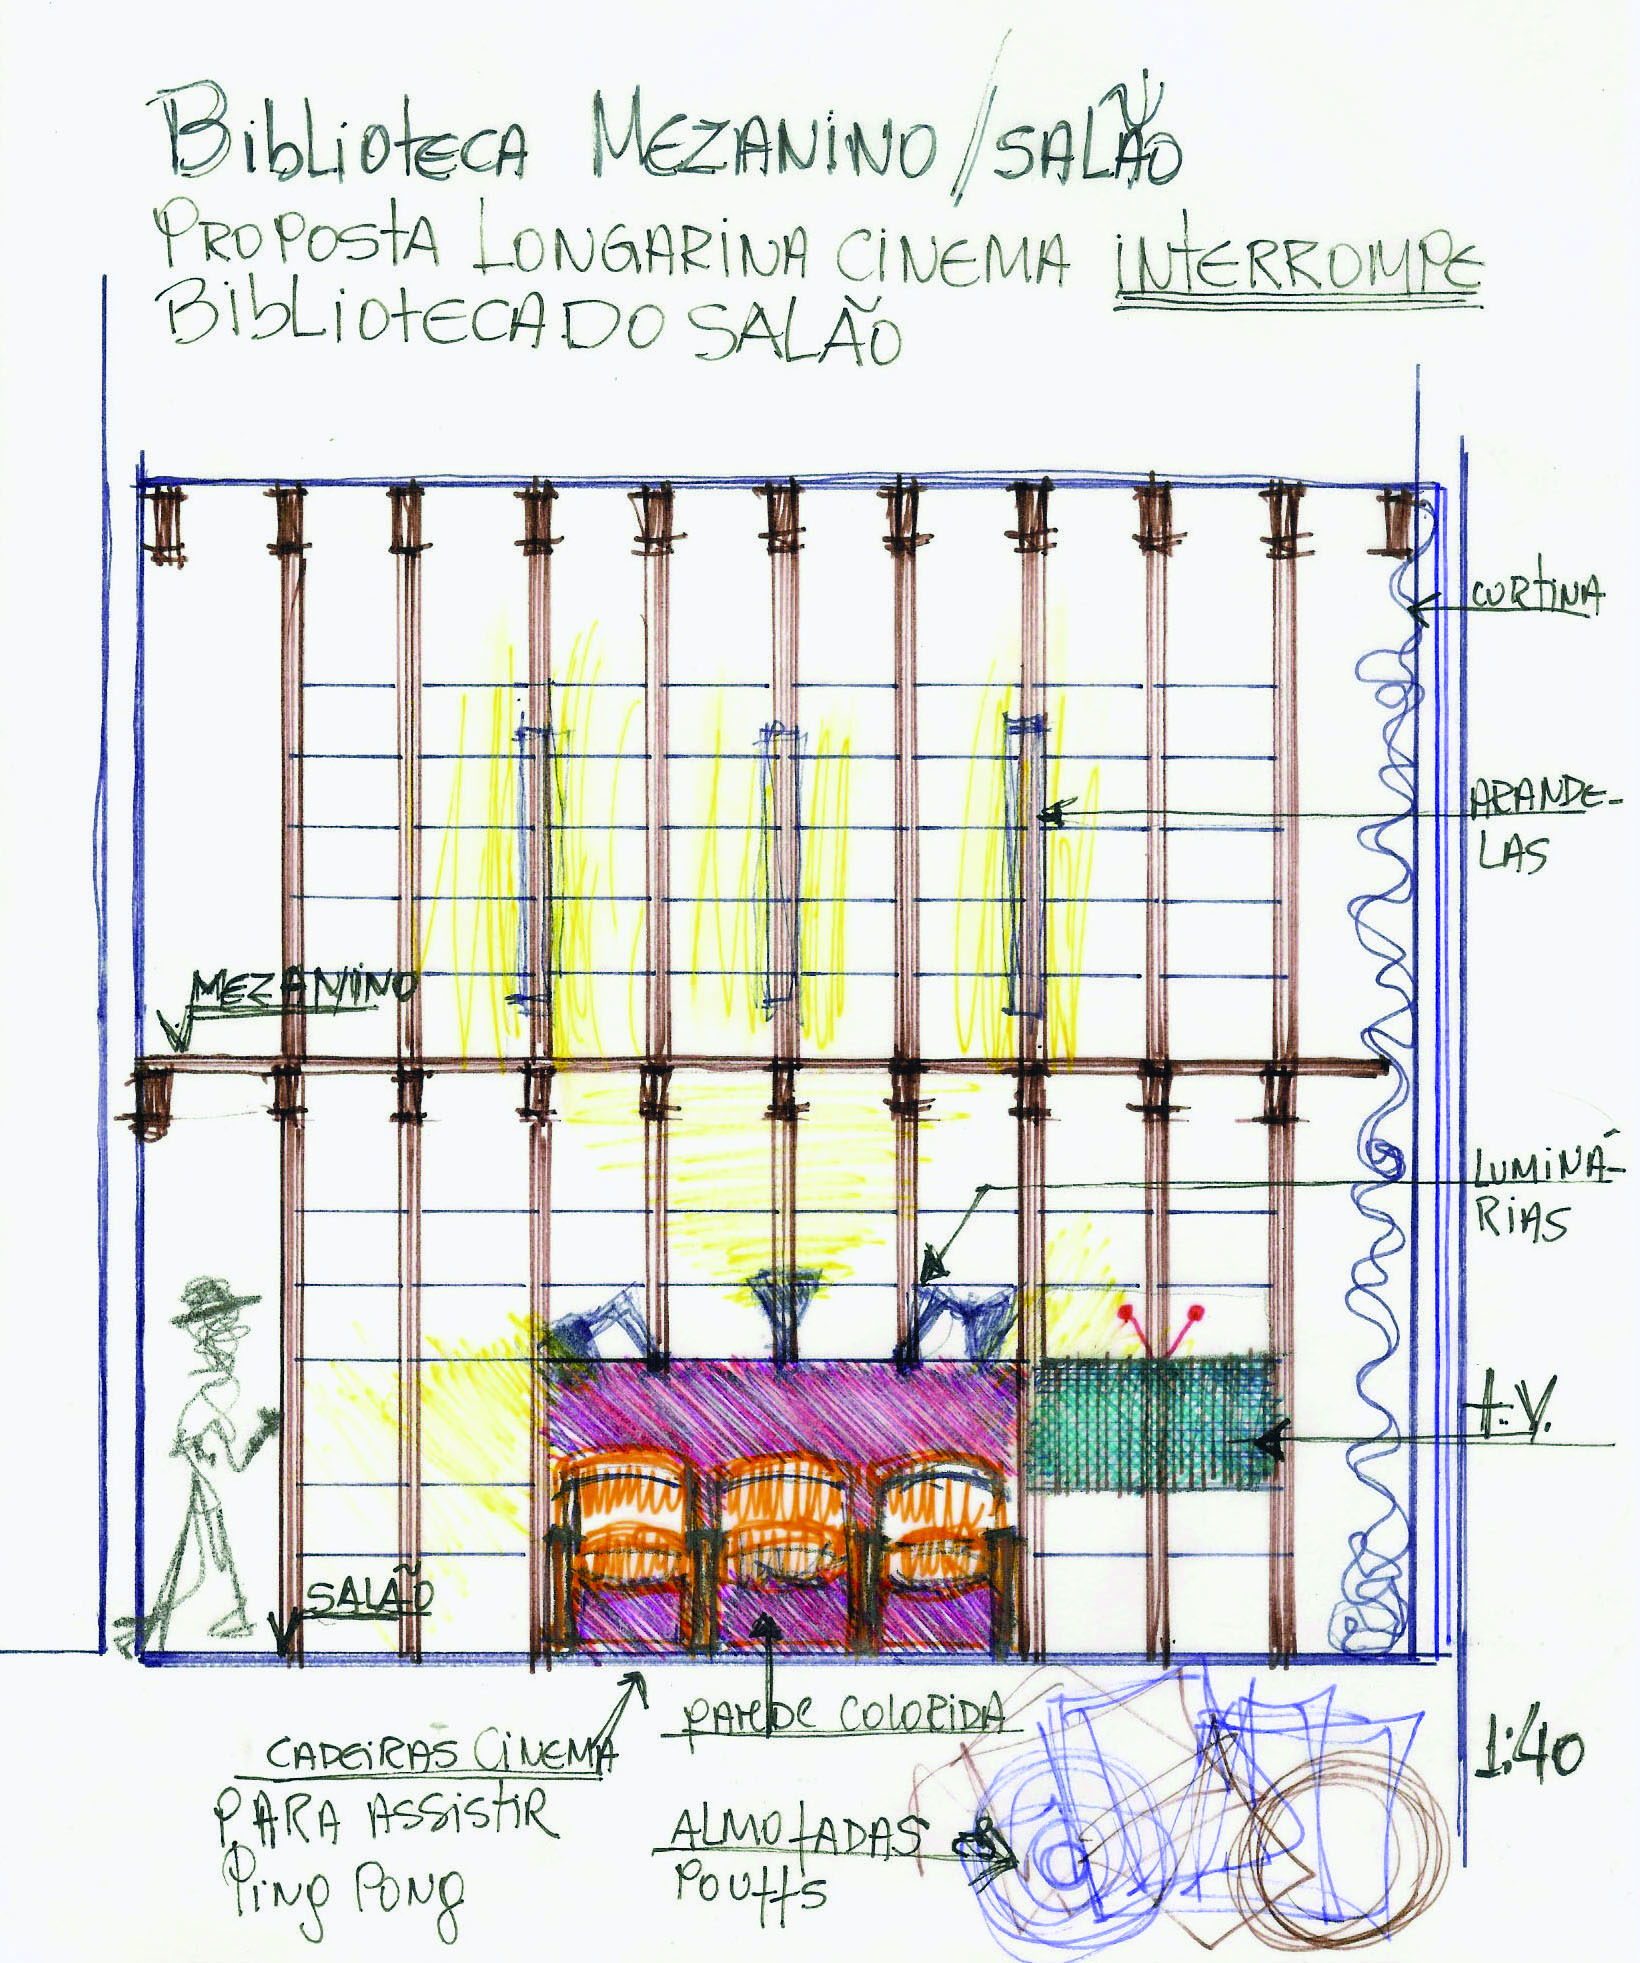 BiblioteCA MEZANiNO/SALÃO
PROPOStA LONGARiNA CiNEMA iNtERROMPE
BibLiOtECA DO SALÃO
CORtiNA
ARANDE-
LAS
MEZANiNO
LUMiNÁ-
RiAS
t.V.
SALÃO
PAREDE COLORIDA
CADEiRAS CiNEMA
PARA ASSiStiR
PiNg PONg
1:40
ALMOfADAS
POUffS